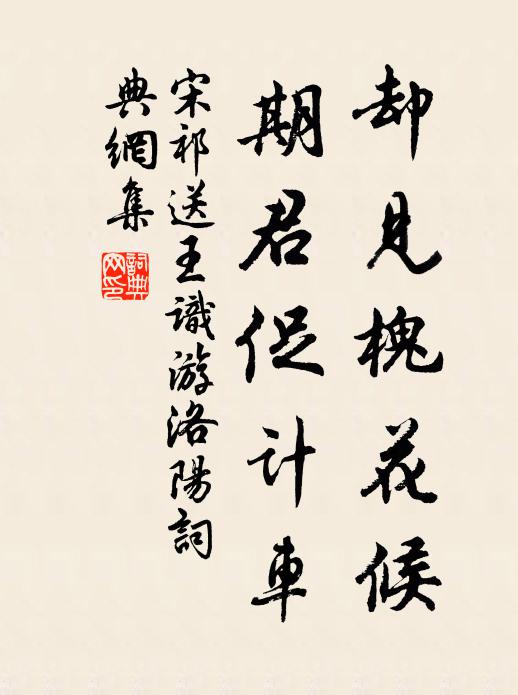 却見槐花候
期君促計車
宋祁送王識游洛陽詞
典網集
詞典
网印